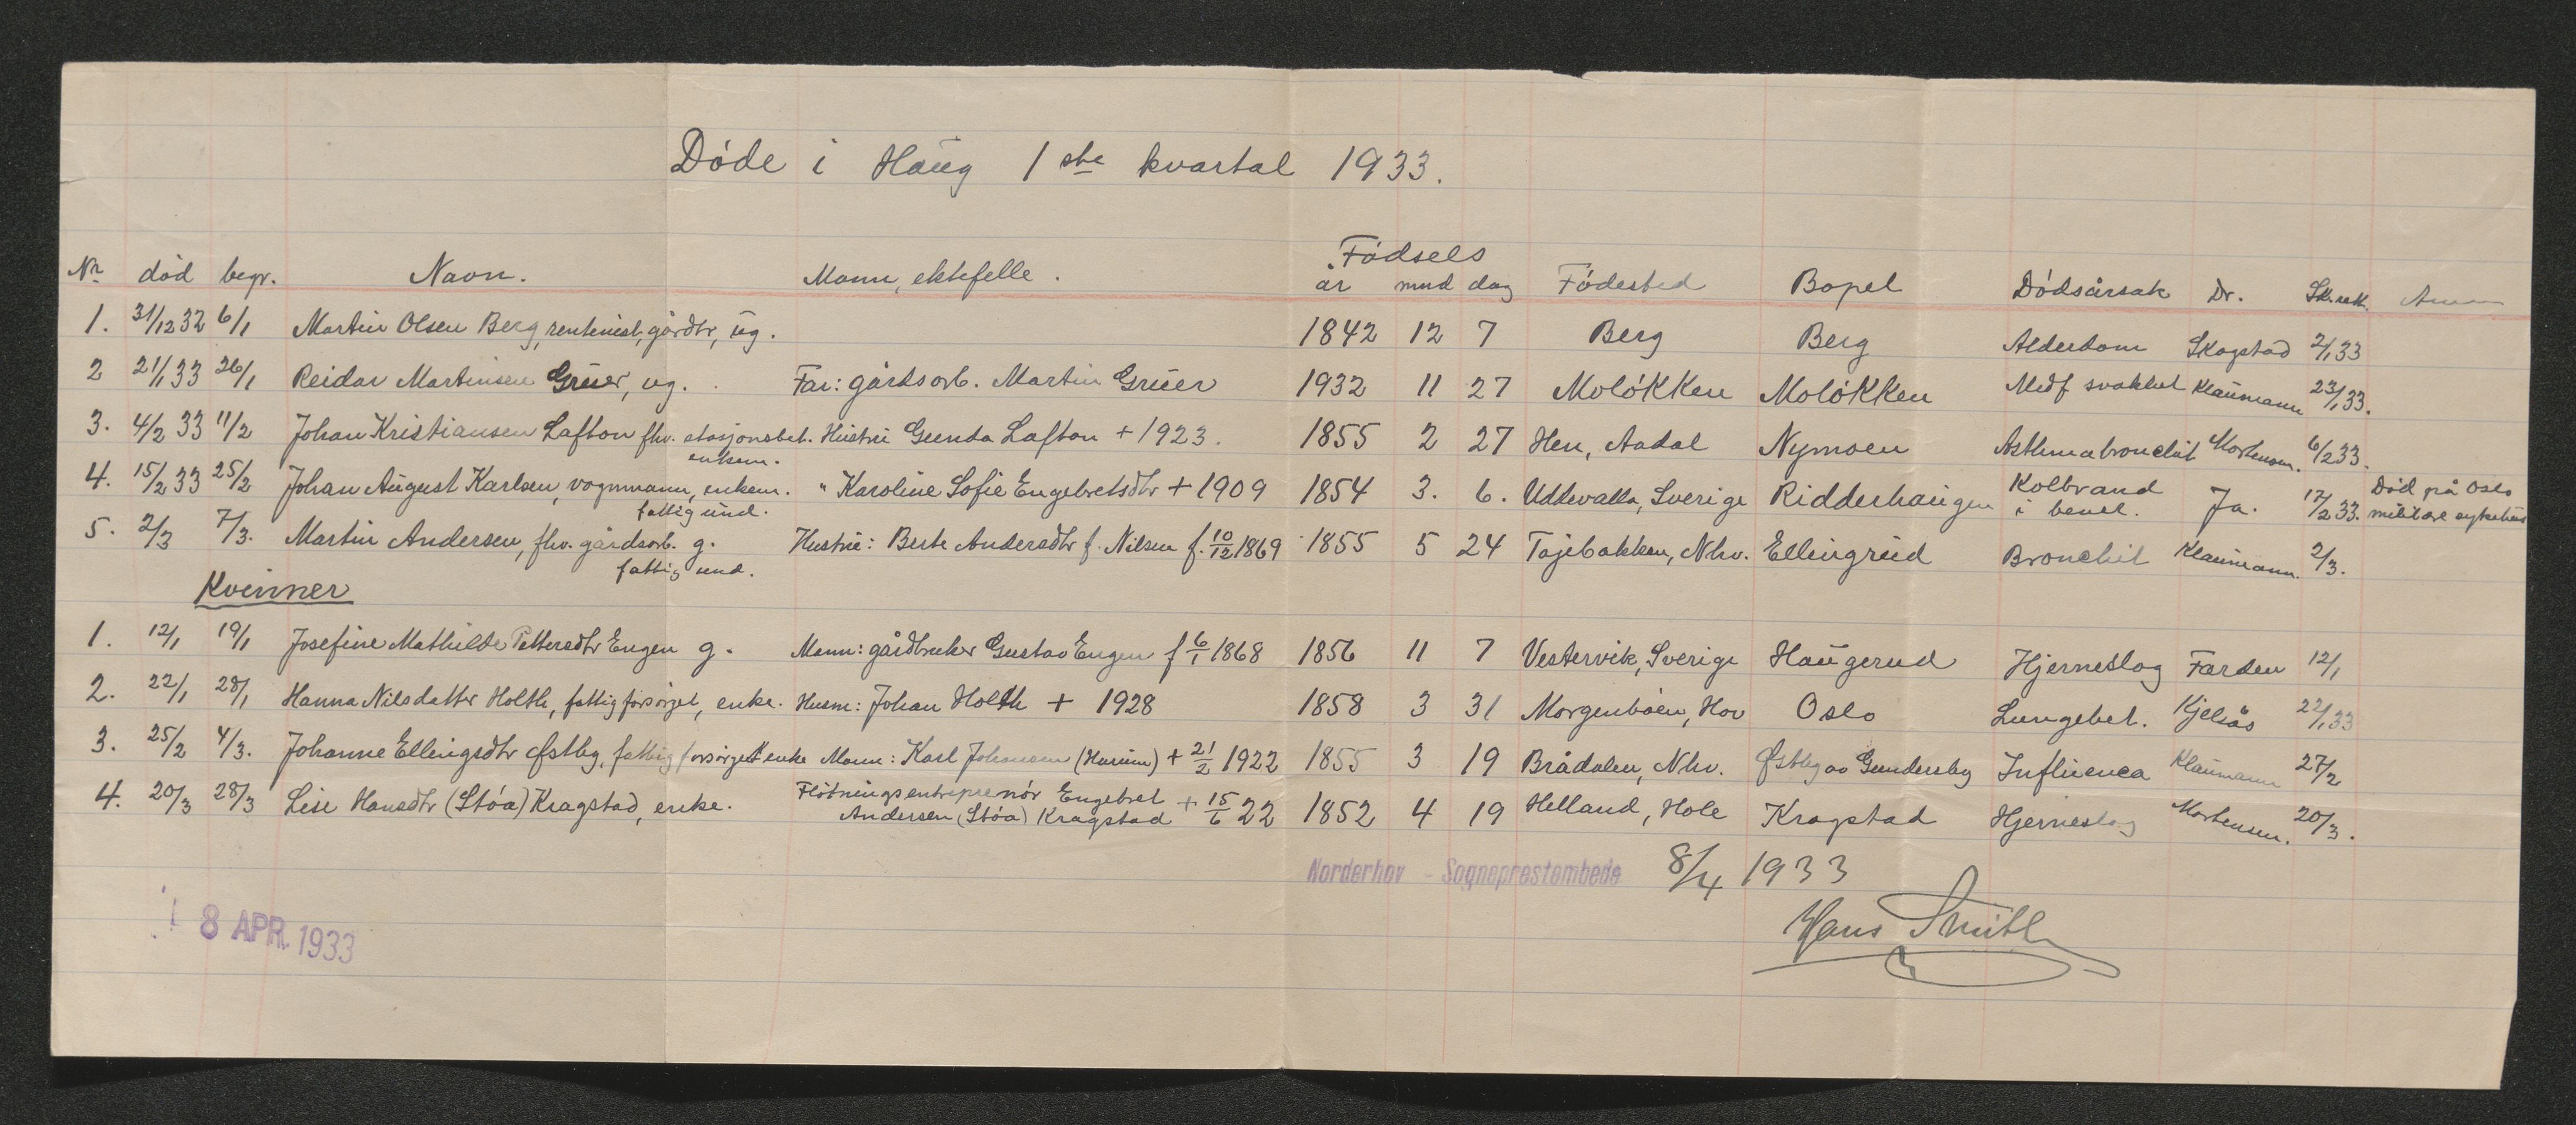 Døde i Haug 1ste kvartal 1933.
Fødsels
Nr. død begr. Navn. Mann, ektefelle. år mnd dag Fødested Bopel Dødsårsak Dr. Sk.rett. Anm
1. 31/12 32 6/1 Martin Olsen Berg, rentenist, gårdbr, ug. 1842 12 7 Berg Berg Alderdom Skogstad 2/1 33
2 21/1 33 26/1 Reidar Martinsen Gruer, ug. Far: gårdsarb. Martin Gruer 1932 11 27 Moløkken Moløkken Medf svakhet Klaumann 23/1 33.
3. 4/2 33 11/2 Johan Kristiansen Lafton fhv. stasjonsbet. Hustru Gunda Lafton + 1923. 1855 2 27 Hen, Aadal Nymoen Asthmabronchit Mortensen. 6/2 33.
enkem.
4. 15/2 33 25/2 Johan August Karlsen, vognmann, enkem. " Karoline Sofie Engebretsdtr + 1909 1854 3. 6. Uddevalla, Sverige Ridderhaugen Kolbrand i benet. Ja. 17/2 33. Død på Oslo militære sykehus
fattig und.
5. 2/3 7/3. Martin Andersen, fhv. gårdsarb. g. Hustru: Berte Andersdtr f. Nilsen f. 10/12 1869 1855 5 24 Tajebakken, Nhv. Ellingrud Bronchit Klaumann. 2/3.
fattig und.
Kvinner
1. 12/1 19/1 Josefine Mathilde Pettersdtr Engen g. Mann: gårdbruker Gustav Engen f 6/1 1868 1856 11 7 Vestervik, Sverige Haugerud Hjerneslag Farden 12/1
2. 22/1 28/1 Hanna Nilsdatter Holth, fattigforsørget, enke. Husm: Johan Holth + 1928 1858 3 31 Morgenbøen, Hov Oslo Lungebet. Kjelsås 22/1 33
3. 25/2 4/3. Johanne Ellingsdtr Østby, fattig forsørget enke Mann: Karl Johansen (Harum) + 21/2 1922 1855 3 19 Brådalen, Nhv. Østby av Gundersby Influenca Klaumann 27/2
4. 20/3 28/3 Lise Hansdtr (Støa) Kragstad, enke. Fløtningsentreprenør Engebret Andersen (Støa) Kragstad + 15/6 22 1852 4 19 Helland, Hole Kragstad Hjerneslag Mortensen. 20/3.
Norderhov - Sogneprestembede 8/4 1933
Hans Smith
8 APR. 1933